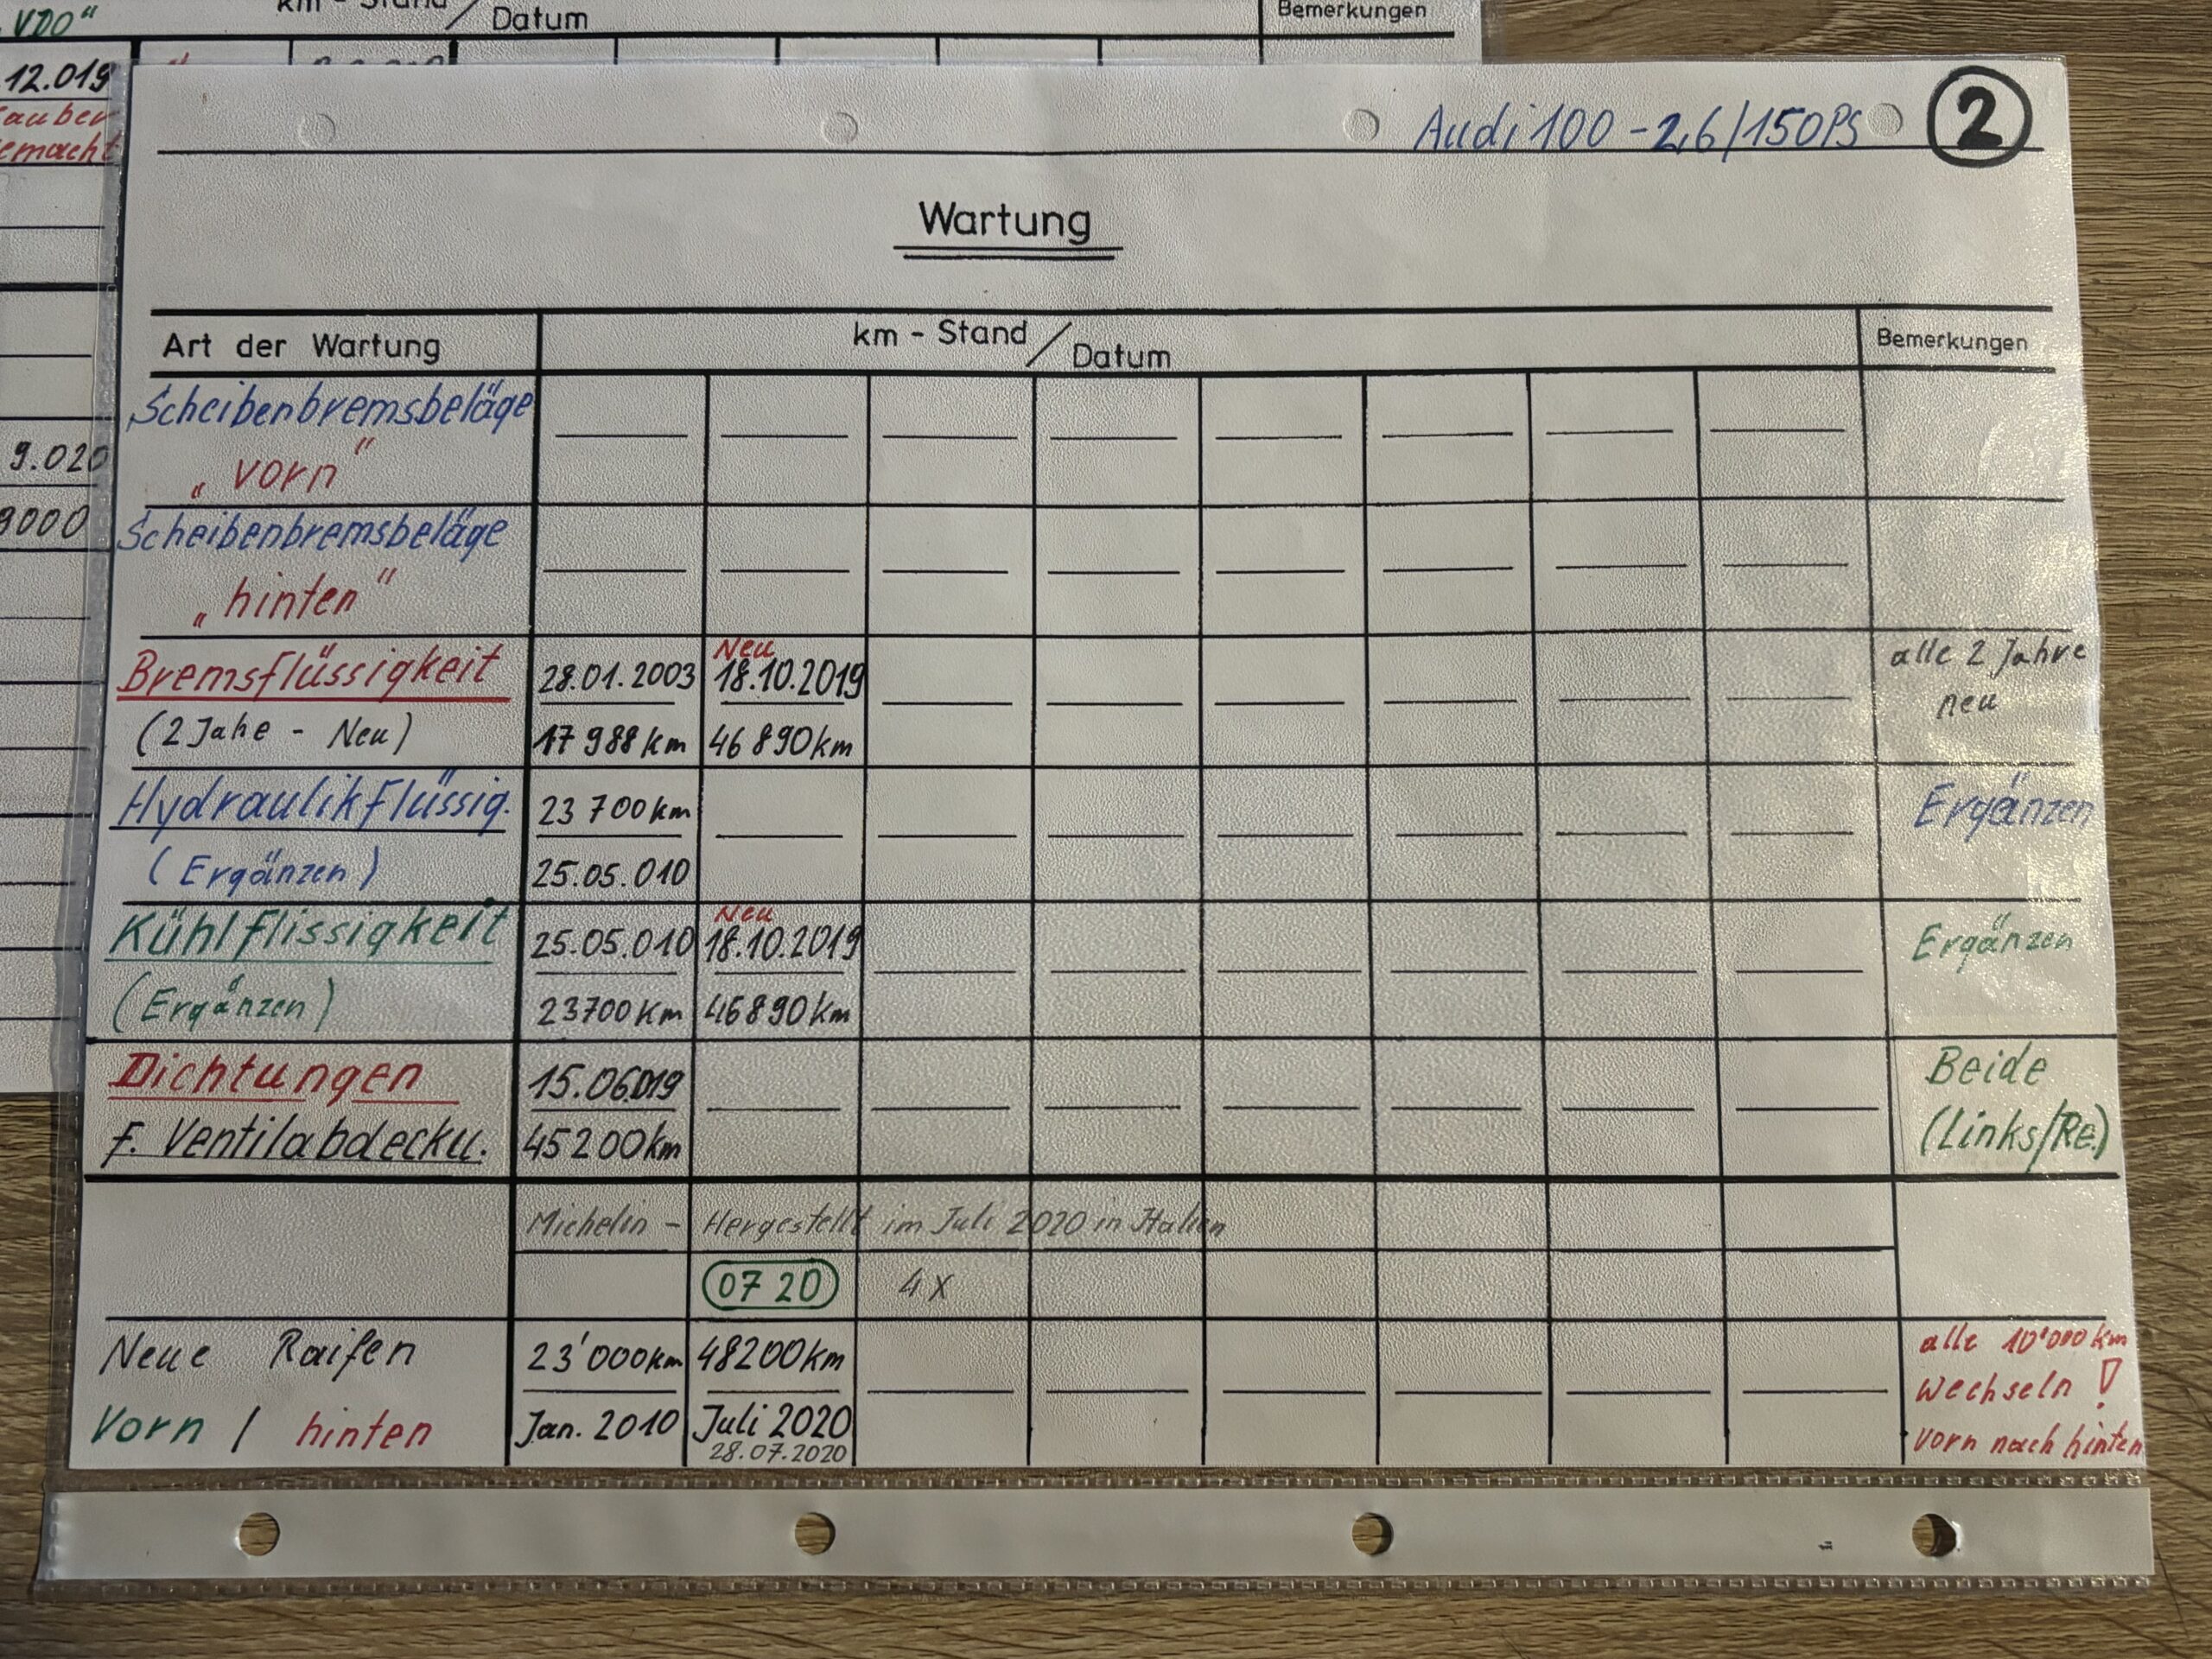 VDO"
km - Stand / Datum
Bemerkungen
12.019
auber
emacht
9.020
9000
Audi 100 - 2,6/150PS
2
Wartung
Art der Wartung
km - Stand / Datum
Bemerkungen
Scheibenbremsbeläge
„vorn"
Scheibenbremsbeläge
„hinten"
Bremsflüssigkeit
(2 Jahe - Neu)
28.01.2003
17 988 km
Neu
18.10.2019
46 890 km
alle 2 Jahre
neu
Hydraulikflüssig.
(Ergänzen)
23 700 km
25.05.010
Ergänzen
Kühlflissigkeit
(Ergänzen)
25.05.010
23700 km
Neu
18.10.2019
46890 km
Ergänzen
Dichtungen
f. Ventilabdecku.
15.06.019
45200 km
Beide
(Links/Re.)
Michelin - Hergestellt im Juli 2020 in Italien
07 20
4 x
Neue Raifen
Vorn / hinten
23'000 km
Jan. 2010
48200 km
Juli 2020
28.07.2020
alle 10'000 km
wechseln !
vorn nach hinten